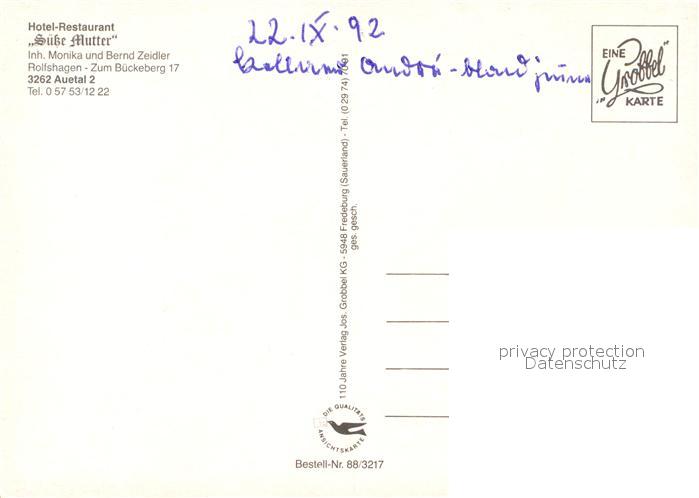 Hotel-Restaurant
„Süße Mutter“
Inh. Monika und Bernd Zeidler
Rolfshagen - Zum Bückeberg 17
3262 Auetal 2
Tel. 0 57 53/12 22
22.IX.92
EINE
"Grobbel"
KARTE
110 Jahre Verlag Jos. Grobbel KG - 5948 Fredeburg (Sauerland) - Tel. (0 29 74) 7091
ges. gesch.
privacy protection
Datenschutz
DIE QUALITÄTS
ANSICHTSKARTE
Bestell-Nr. 88/3217